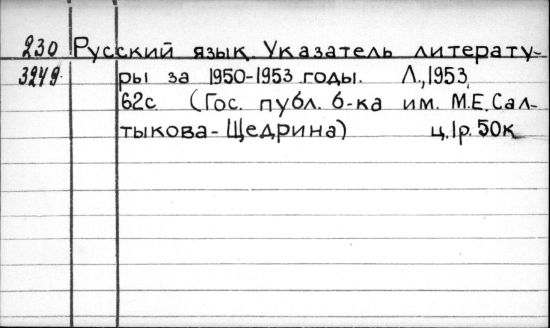 230 Русский язык. Указатель литерату-
3249 ры за 1950-1953 годы. Л., 1953,
62с. (Гос. публ. б-ка им. М.Е. Сал-
тыкова-Щедрина) ц. 1р. 50к.